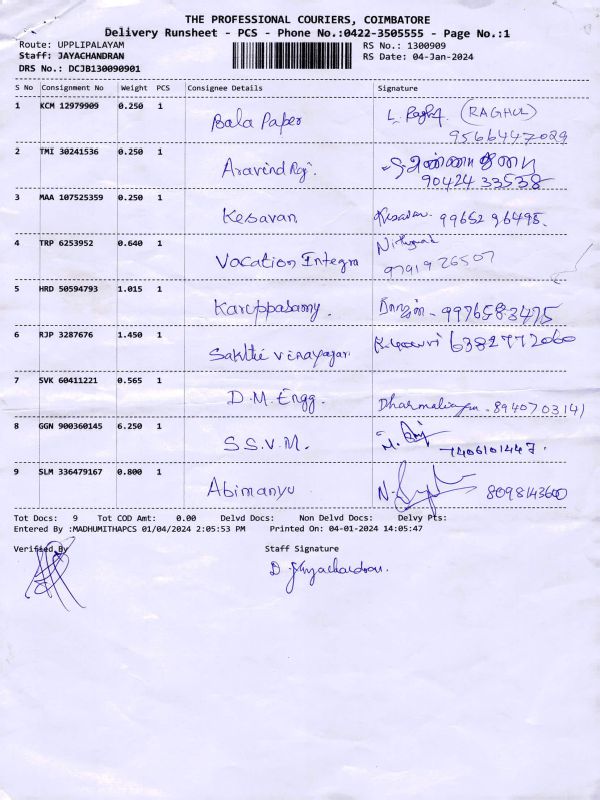 THE PROFESSIONAL COURIERS, COIMBATORE
Delivery Runsheet - PCS - Phone No.:0422-3505555 - Page No.:1
Route: UPPLIPALAYAM RS No.: 1300909
Staff: JAYACHANDRAN RS Date: 04-Jan-2024
DRS No.: DCJB130090901
S No Consignment No Weight PCS Consignee Details Signature
1 KCM 12979909 0.250 1 Bala Paper (RAGHUL)
9566447029
2 TMI 30241536 0.250 1 Aravind Raj.
90424 33538
3 MAA 107525359 0.250 1 Kesavan Kesavan. 99652 96498.
4 TRP 6253952 0.640 1 Vocation Integra
9791926507
5 HRD 50594793 1.015 1 Karuppasamy. 9976583475
6 RJP 3287676 1.450 1 Sakthi vinayagar 6382972060
7 SVK 60411221 0.565 1 D.M. Engg. 8940703141
8 GGN 900360145 6.250 1 S.S.V.M. 7406101447.
9 SLM 336479167 0.800 1 Abimanyu 8098143600
Tot Docs: 9 Tot COD Amt: 0.00 Delvd Docs: Non Delvd Docs: Delvy Pts:
Entered By :MADHUMITHAPCS 01/04/2024 2:05:53 PM Printed On: 04-01-2024 14:05:47
Verified By Staff Signature
D. Jayachandran.